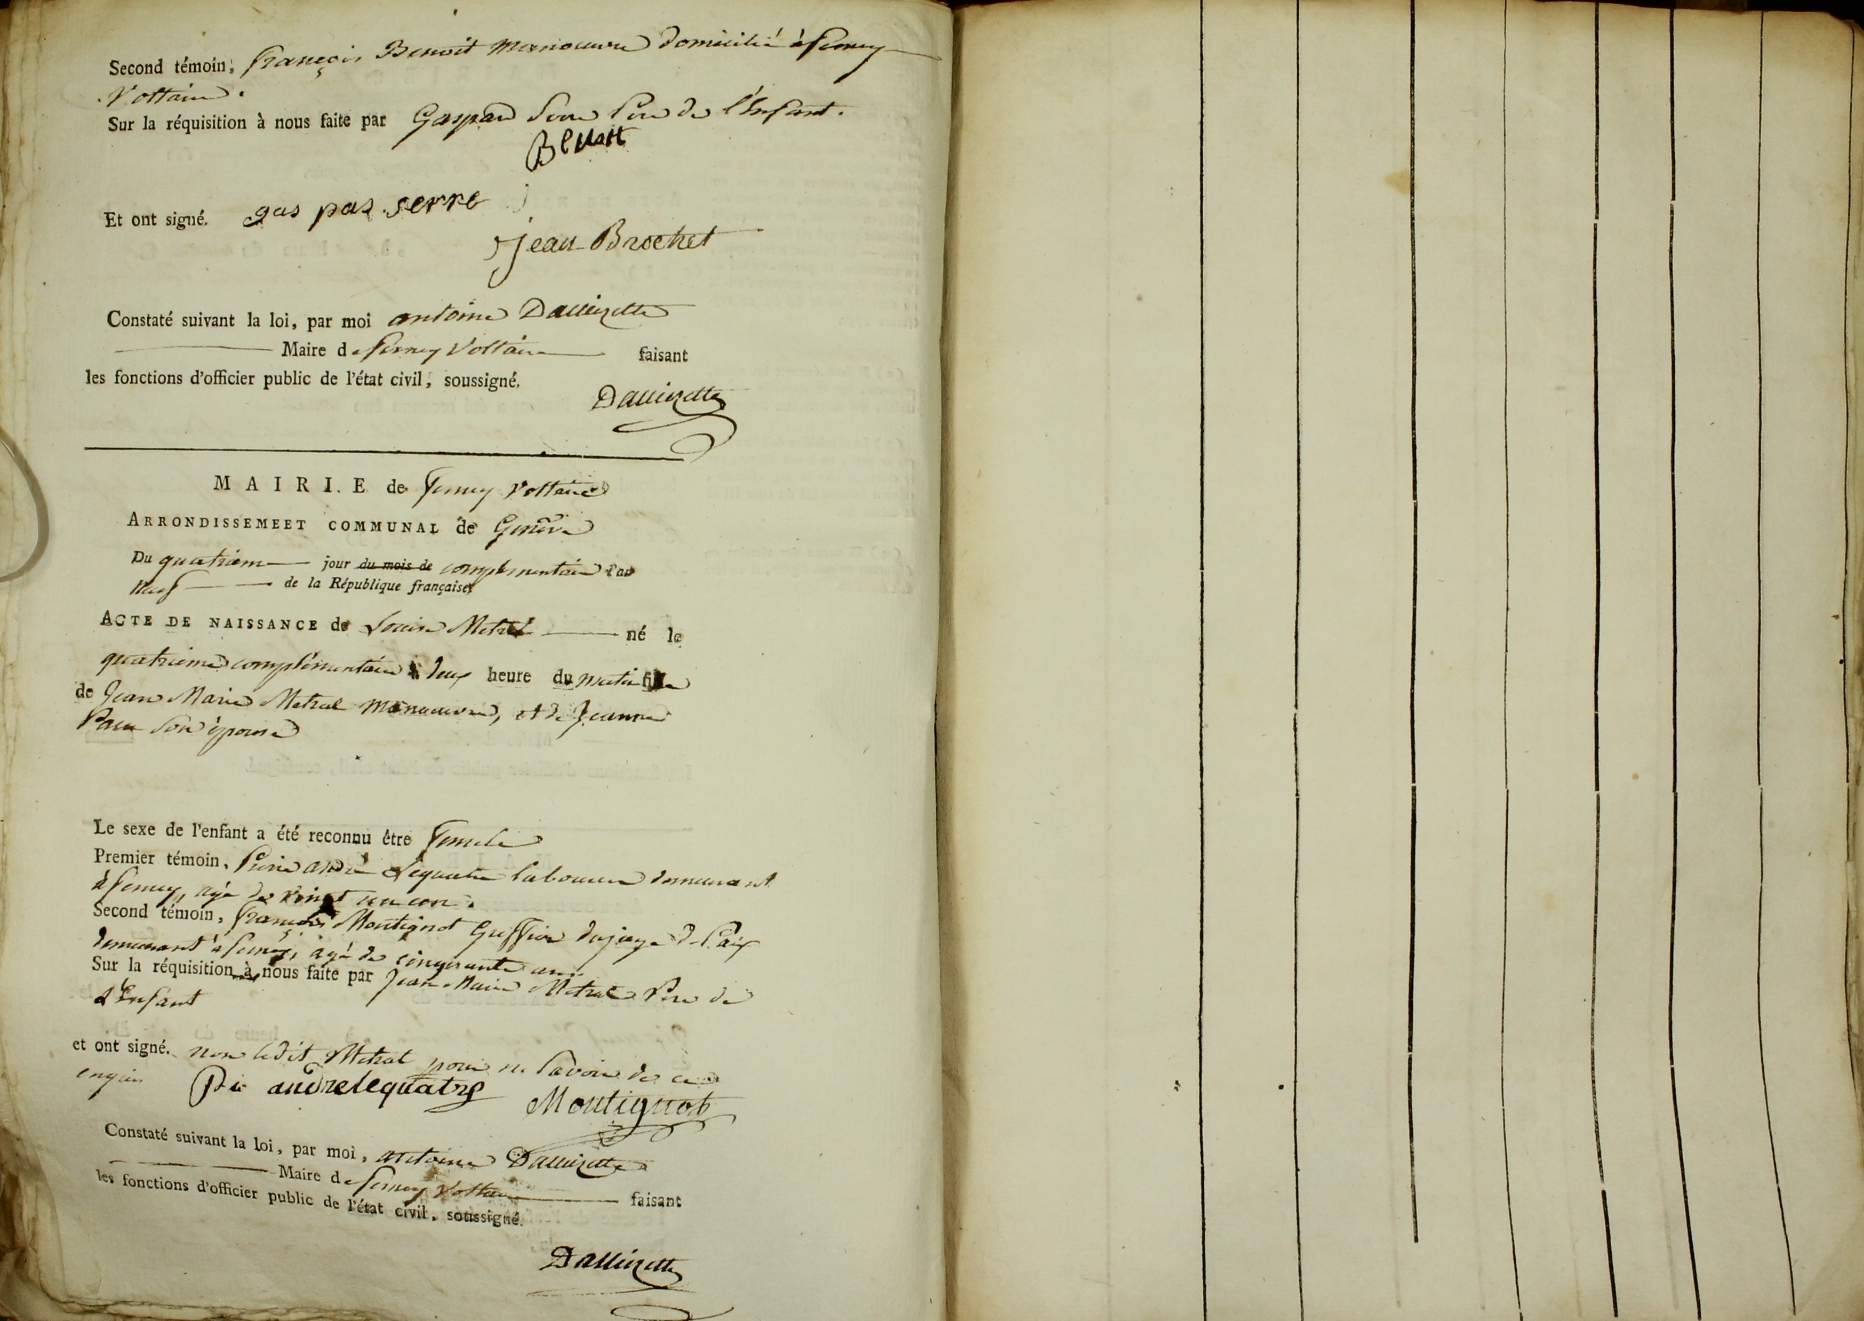 Second témoin, françois Benoit manoeuvre domicilié à ferney
Voltaire.
Sur la réquisition à nous faite par Gaspard Serre Père de l'Enfant.
Benoit
Et ont signé. gas pas serre
jean Brochet
Constaté suivant la loi, par moi antoine
Maire de ferney Voltaire faisant
les fonctions d'officier public de l'état civil, soussigné.
MAIRIE de ferney Voltaire
ARRONDISSEMEET COMMUNAL de Genève
Du quatrieme jour du mois de complementaire l'an
neuf de la République française
ACTE DE NAISSANCE de Louise Metral né le
quatrieme complémentaire à deux heure du matin fille
de Jean Marie Metral manoeuvre, et de Jeanne
son épouse
Le sexe de l'enfant a été reconnu être femele
Premier témoin, Pierre andré Lequatre laboureur demeurant
à ferney, agé de vingt un ans.
Second témoin, françois Montignot Greffier du juge de Paix
demeurant à ferney, agé de cinquante ans
Sur la réquisition à nous faite par Jean Marie Metral Père de
L'Enfant
et ont signé. non ledit Metral pour ne savoir de ce
enquis Pie andrelequatre Montignot
Constaté suivant la loi, par moi, antoine
Maire de ferney Voltaire faisant
les fonctions d'officier public de l'état civil, soussigné.